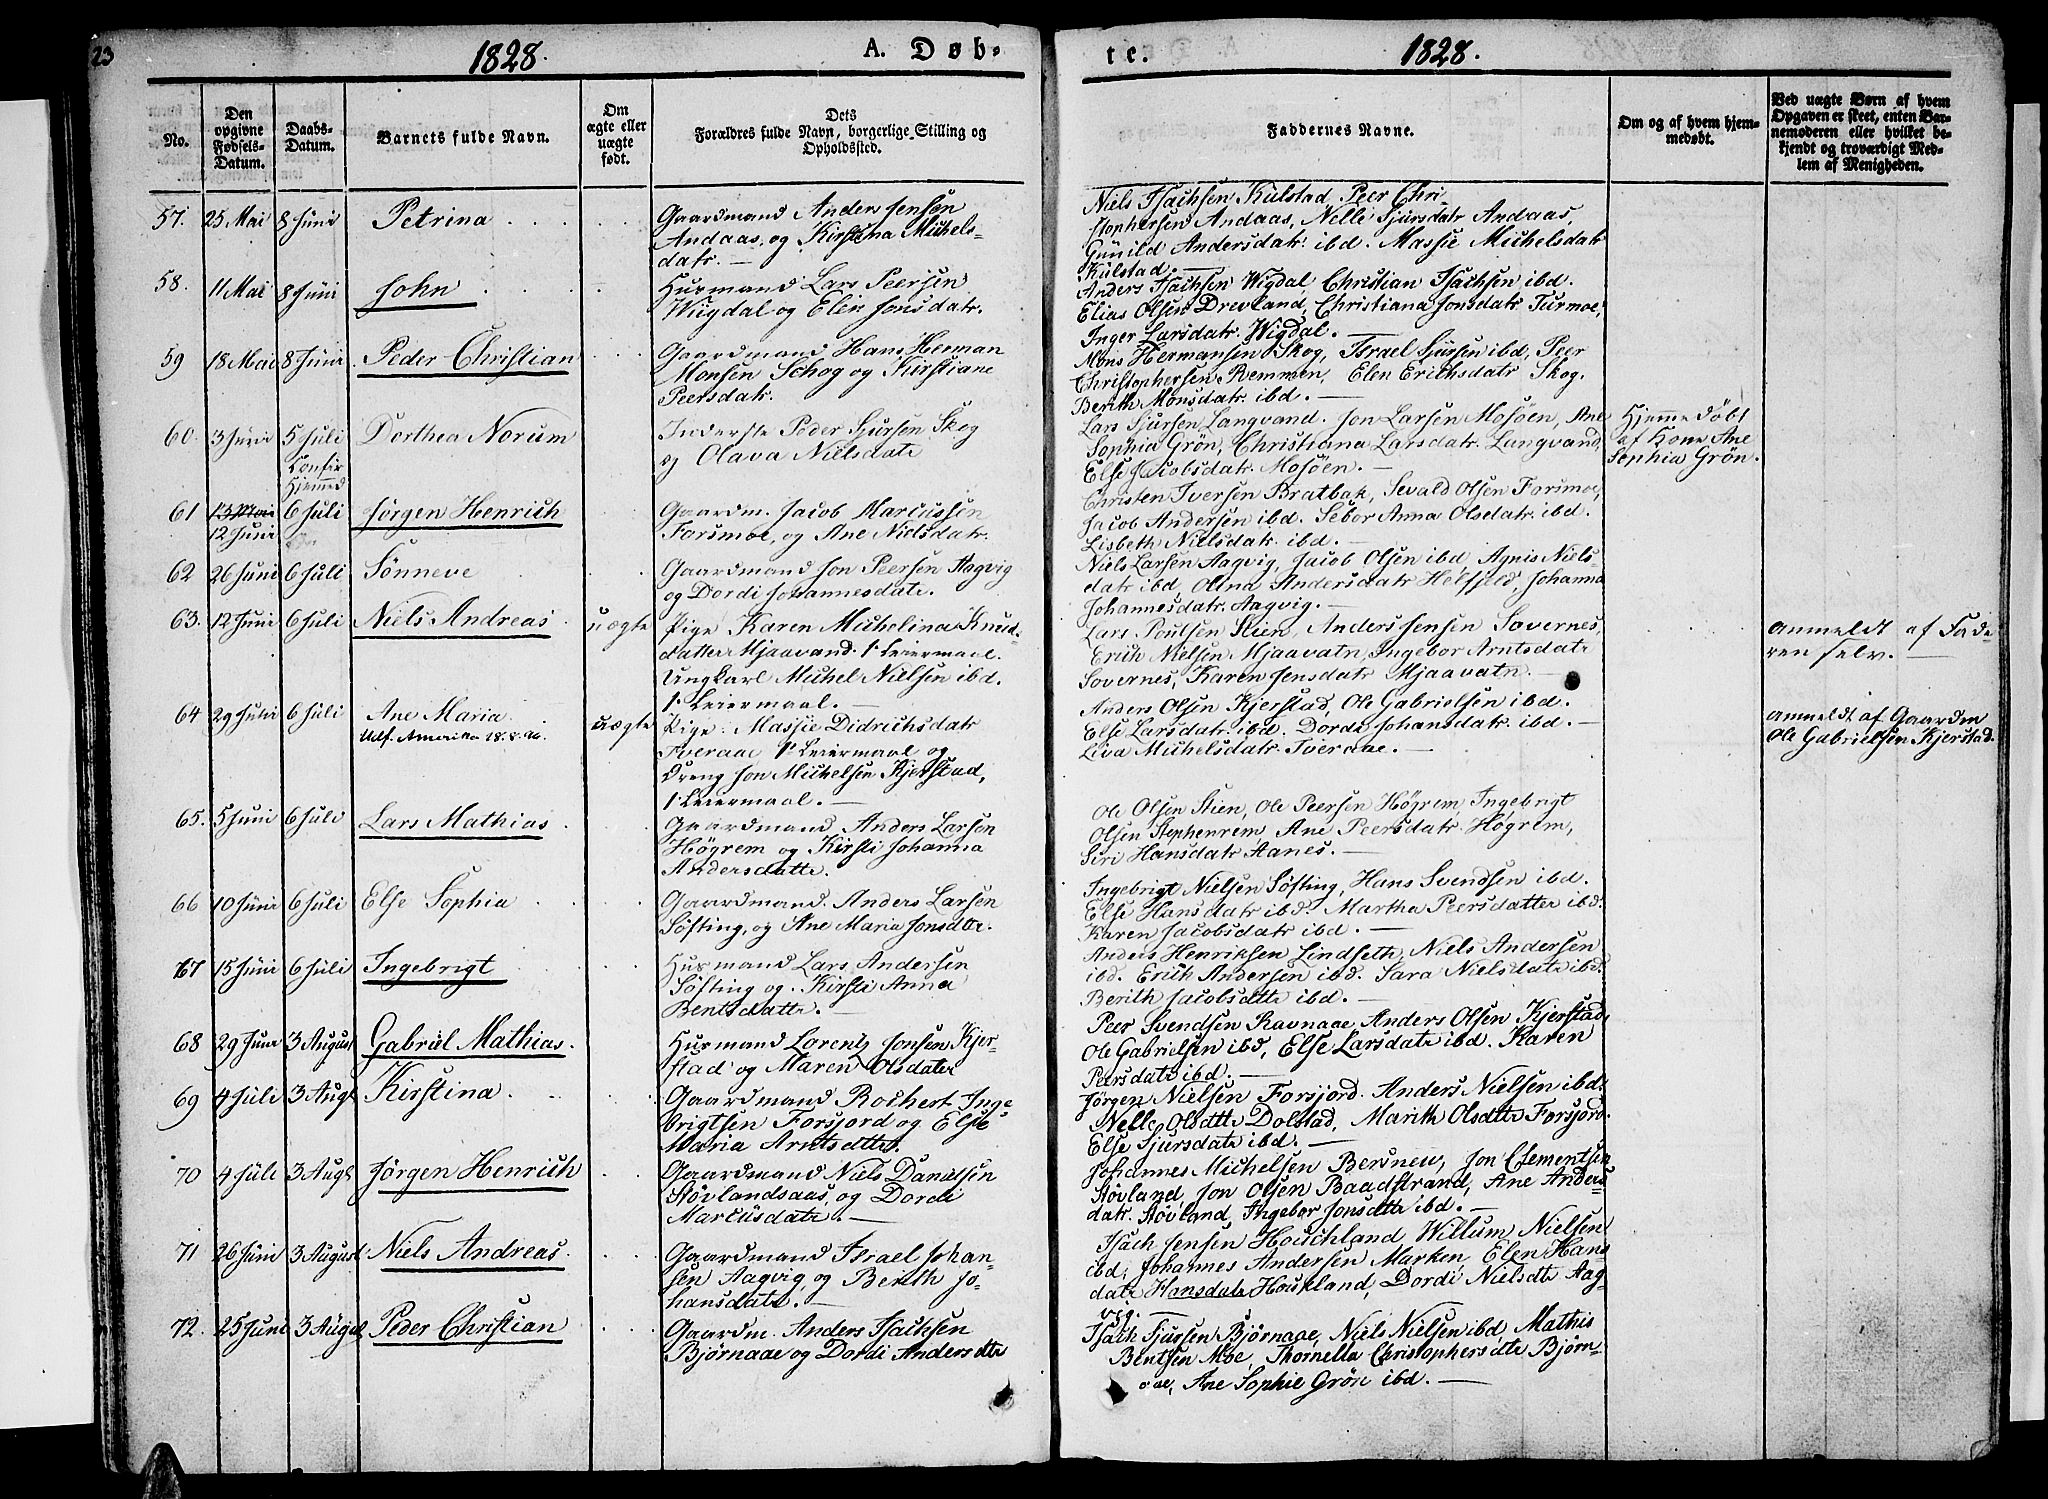 23
1828.
A. Døb-
te.
1828.
No.
Den opgivne Fødsels-Datum.
Daabs-Datum.
Barnets fulde Navn.
Om ægte eller uægte født.
Dets
Forældres fulde Navn, borgerlige Stilling og
Opholdssted.
Faddernes Navne.
Om og af hvem hjem-
medøbt.
Ved uægte Børn af hvem
Opgaven er skeet, enten Bar-
nemoderen eller hvilket be-
kjendt og troværdigt Med-
lem af Menigheden.
57. 25 Mai 8 Juni Petrina
Gaardmand Anders Jensen
Andaas, og Kirstina Michels-
datr. —
Niels Isachsen Kulstad, Peer Chri-
stophersen Andaas, Nelle Sjursdatr Andaas,
Gunild Andersdatr ibd. Massie Michelsdatr
Kulstad. —
58. 11 Mai 8 Juni John
Husmand Lars Peersen
Wigdal og Elen Jonsdatr.
Anders Isachsen Wigdal, Christian Isachsen ibd.
Elias Olsen Drevland, Christiana Jonsdatr Turmoe,
Inger Larsdatr. Wigdal. —
59 18 Mai 8 Juni Peder Christian
Gaardmand Hans Herman
Monsen Schog og Kirstiane
Peersdatr.
Mons Hermansen Skog, Israel Sjursen ibd, Peer
Christophersen Remmen, Elen Erichsdatr Skog.
Berith Monsdatr ibd. —
60. 3 Juni 5 Juli Dorthea Norum
Konfir
Hjemmed
Inderste Peder Sjursen Skog
og Olava Nielsdatr
Lars Sjursen Langvand. Jon Larsen Mosøen, Ane
Sophia Grøn, Christiana Larsdatr. Langvand,
Else Jacobsdatr. Mosøen. —
Hjemmedøbt
af Kone Ane
Sophia Grøn.
61 13 Mai 6 Juli Jørgen Henrich
12 Juni
Gaardm. Jacob Marcussen
Forsmoe, og Ane Nielsdatr.
Christen Iversen Bratbak, Sevald Olsen Forsmoe,
Jacob Andersen ibd. Sebor Anna Olsdatr. ibd.
Lisbeth Nielsdatr. ibd. —
62 26 Juni 6 Juli Sønneve
Gaardmand Jon Peersen Aagvig
og Dordi Johannesdatr.
Niels Larsen Aagvig, Jacob Olsen ibd, Agnis Niels-
datr ibd, Olina Andersdatr Helfjeld, Johanna
Johannesdatr. Aagvig. —
63. 12 Juni 6 Juli Niels Andreas uægte
Pige Karen Michelina Knud-
datter Mjaavand. 1t Leiermaal.
Ungkarl Michel Nielsen ibd.
1t Leiermaal. —
Lars Poulsen Stien, Anders Jensen Sovernes,
Erich Nielsen Mjaavatn, Ingebor Arntsdatr
Sovernes, Karen Jensdatr Mjaavatn. —
anmeldt af Fade-
ren selv. —
64 29 Juni 6 Juli Ane Maria. uægte
Utf. Amerika 18.8.96.
Pige. Massie Didrichsdatr
Tveraae 1t Leiermaal og
Dreng Jon Michelsen Kjerstad,
1t Leiermaal. —
Anders Olsen Kjerstad, Ole Gabrielsen ibd.
Else Larsdatr. ibd. Dordi Johansdatr. ibd. —
Leva Michelsdatr. Tveraae. —
anmeldt af Gaardm
Ole Gabrielsen Kjerstad.
65. 5 Juni 6 Juli Lars Mathias
Gaardmand Anders Larsen
Høgrem og Kirsti Johanna
Andersdatte.
Ole Olsen Stien, Ole Peersen Høgrem, Ingebrigt
Olsen Stephenrem, Ane Peersdatr. Høgrem,
Siri Hansdatr Aanes. —
66 10 Juni 6 Juli Else Sophia
Gaardmand. Anders Larsen
Søfting, og Ane Maria Jonsdtr.
Ingebrigt Nielsen Søfting, Hans Svendsen ibd.
Else Hansdatr ibd. Martha Peersdatter ibd.
Karen Jacobsdatr ibd. —
67 15 Juni 6 Juli Ingebrigt
Husmand Lars Andersen
Søfting og. Kirsti Anna
Bentsdatte. —
Anders Henriksen Lindseth, Niels Andersen
ibd. Erich Andersen ibd. Sara Nielsdatr ibd.
Berith Jacobsdtr ibd. —
68 29 Juni 3 August Gabriel Mathias.
Husmand Lorentz Jonsen Kjer-
stad og Maren Olsdatr
Peer Svendsen Ravnaae, Anders Olsen Kjerstad,
Ole Gabrielsen ibd, Else Larsdatr ibd. Karen
Peersdatr ibd. —
69 4 Juli 3 Augt Kirstina.
Gaardmand Rochert Inge-
brigtsen Forsjord og Else
Maria Arntsdtte.
Jørgen Nielsen Forsjord. Anders Nielsen ibd.
Nelle Olsdtte Dolstad, Marith Olsdtte Forsjord.
Else Sjursdatr ibd. —
70 4 Juli 3 Augt Jørgen Henrich
Gaardmand Niels Danielsen
Støvlandsaas, og Dordi
Marcusdatr. —
Johannes Michelsen Bersneu, Jon Clementsen
Støvland, Jon Olsen Baadstrand, Ane Anders-
datr. Støvland, Ingebor Jonsdtte ibd. —
71 26 Juni 3 August Niels Andreas.
Gaardmand Israel Johan-
sen Aagvig, og Berith Jo-
hansdatr. —
Isach Jensen Houchland, Willum Nielsen
ibd; Johannes Andersen Marken, Elen Hans-
datr Hansdatr Houkland, Dordi Nielsdtr Aag-
vig. —
72. 25 Juni 3 Augst Peder Christian
Gaardm. Anders Isachsen
Bjørnaae og Dordi Andersdtr
Isach Sjursen Bjørnaae, Niels Nielsen ibd, Mathis
Bentsen Moe, Thornella Christophersdtr Bjørn-
aae, Ane Sophie Grøn ibd. —